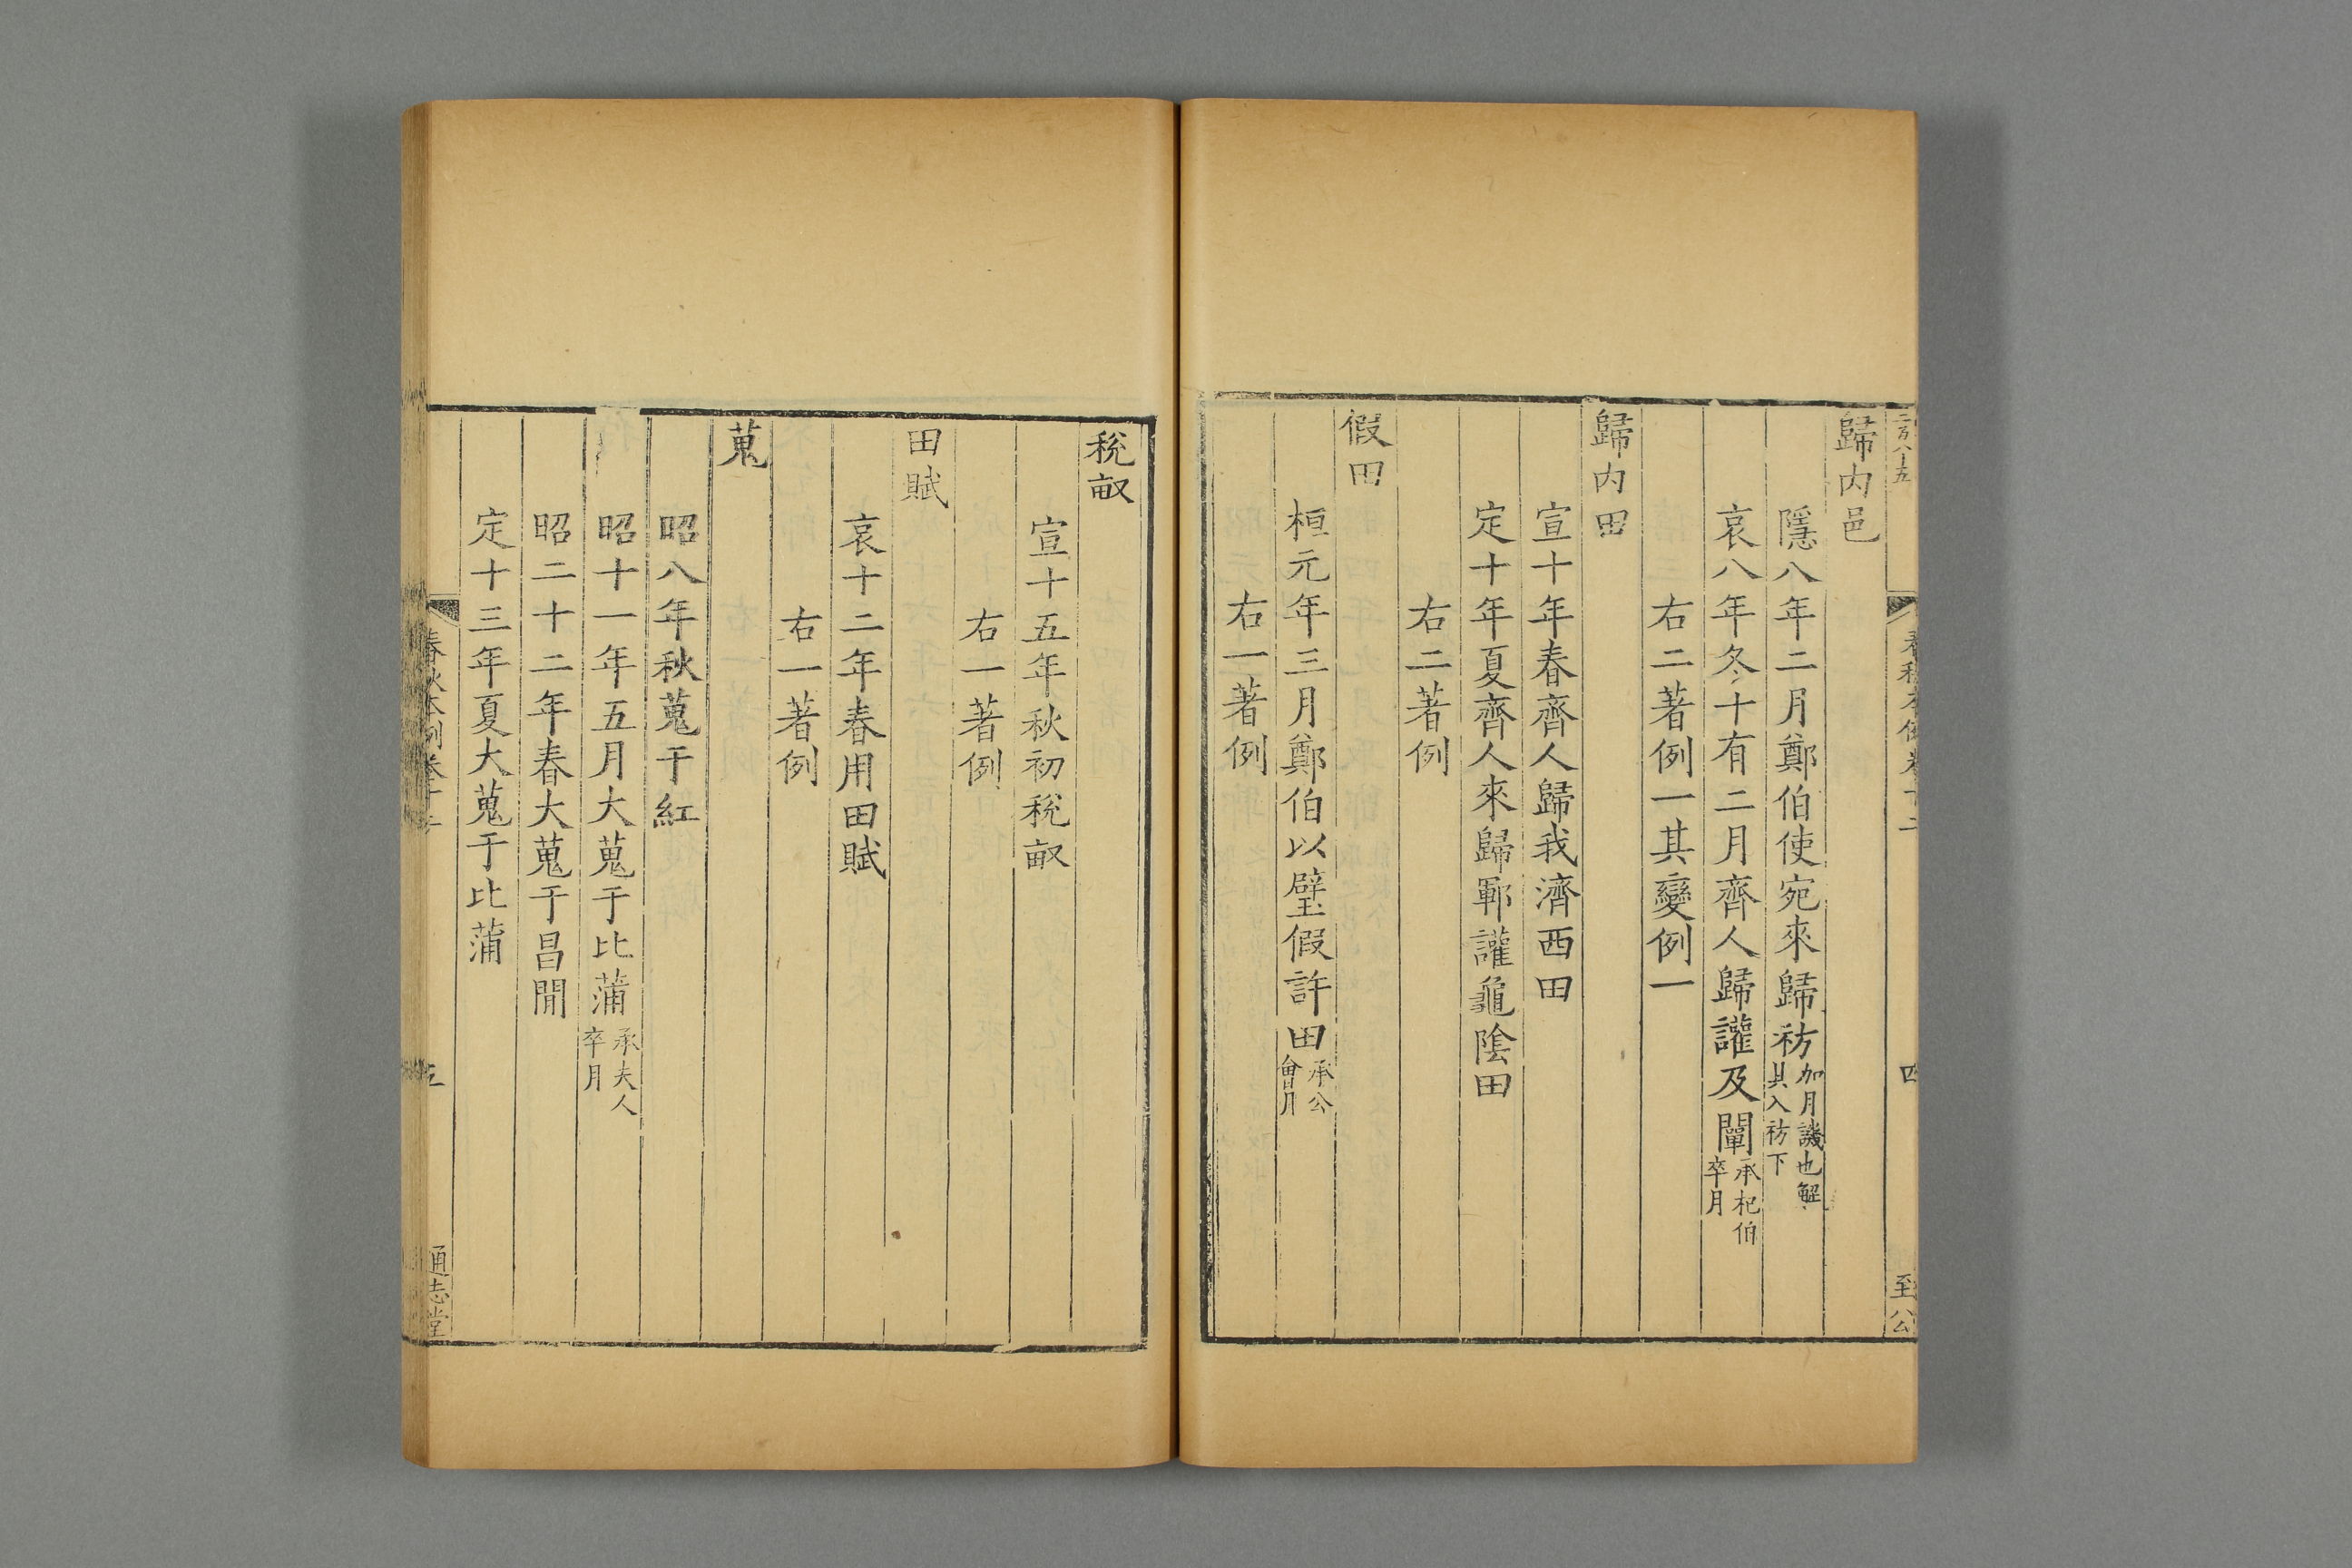 歸内邑
隱八年二月鄭伯使宛來歸祊加月譏也解具入祊下
哀八年冬十有二月齊人歸讙及闡承杞伯卒月
右二著例一其變例一
歸内田
宣十年春齊人歸我濟西田
定十年夏齊人來歸鄆讙龜陰田
右二著例
假田
桓元年三月鄭伯以璧假許田承公會月
右一著例
稅畝
宣十五年秋初稅畝
右一著例
田賦
哀十二年春用田賦
右一著例
蒐
昭八年秋蒐于紅
昭十一年五月大蒐于比蒲承夫人卒月
昭二十二年春大蒐于昌閒
定十三年夏大蒐于比蒲
春秋本例卷十二
五
通志堂